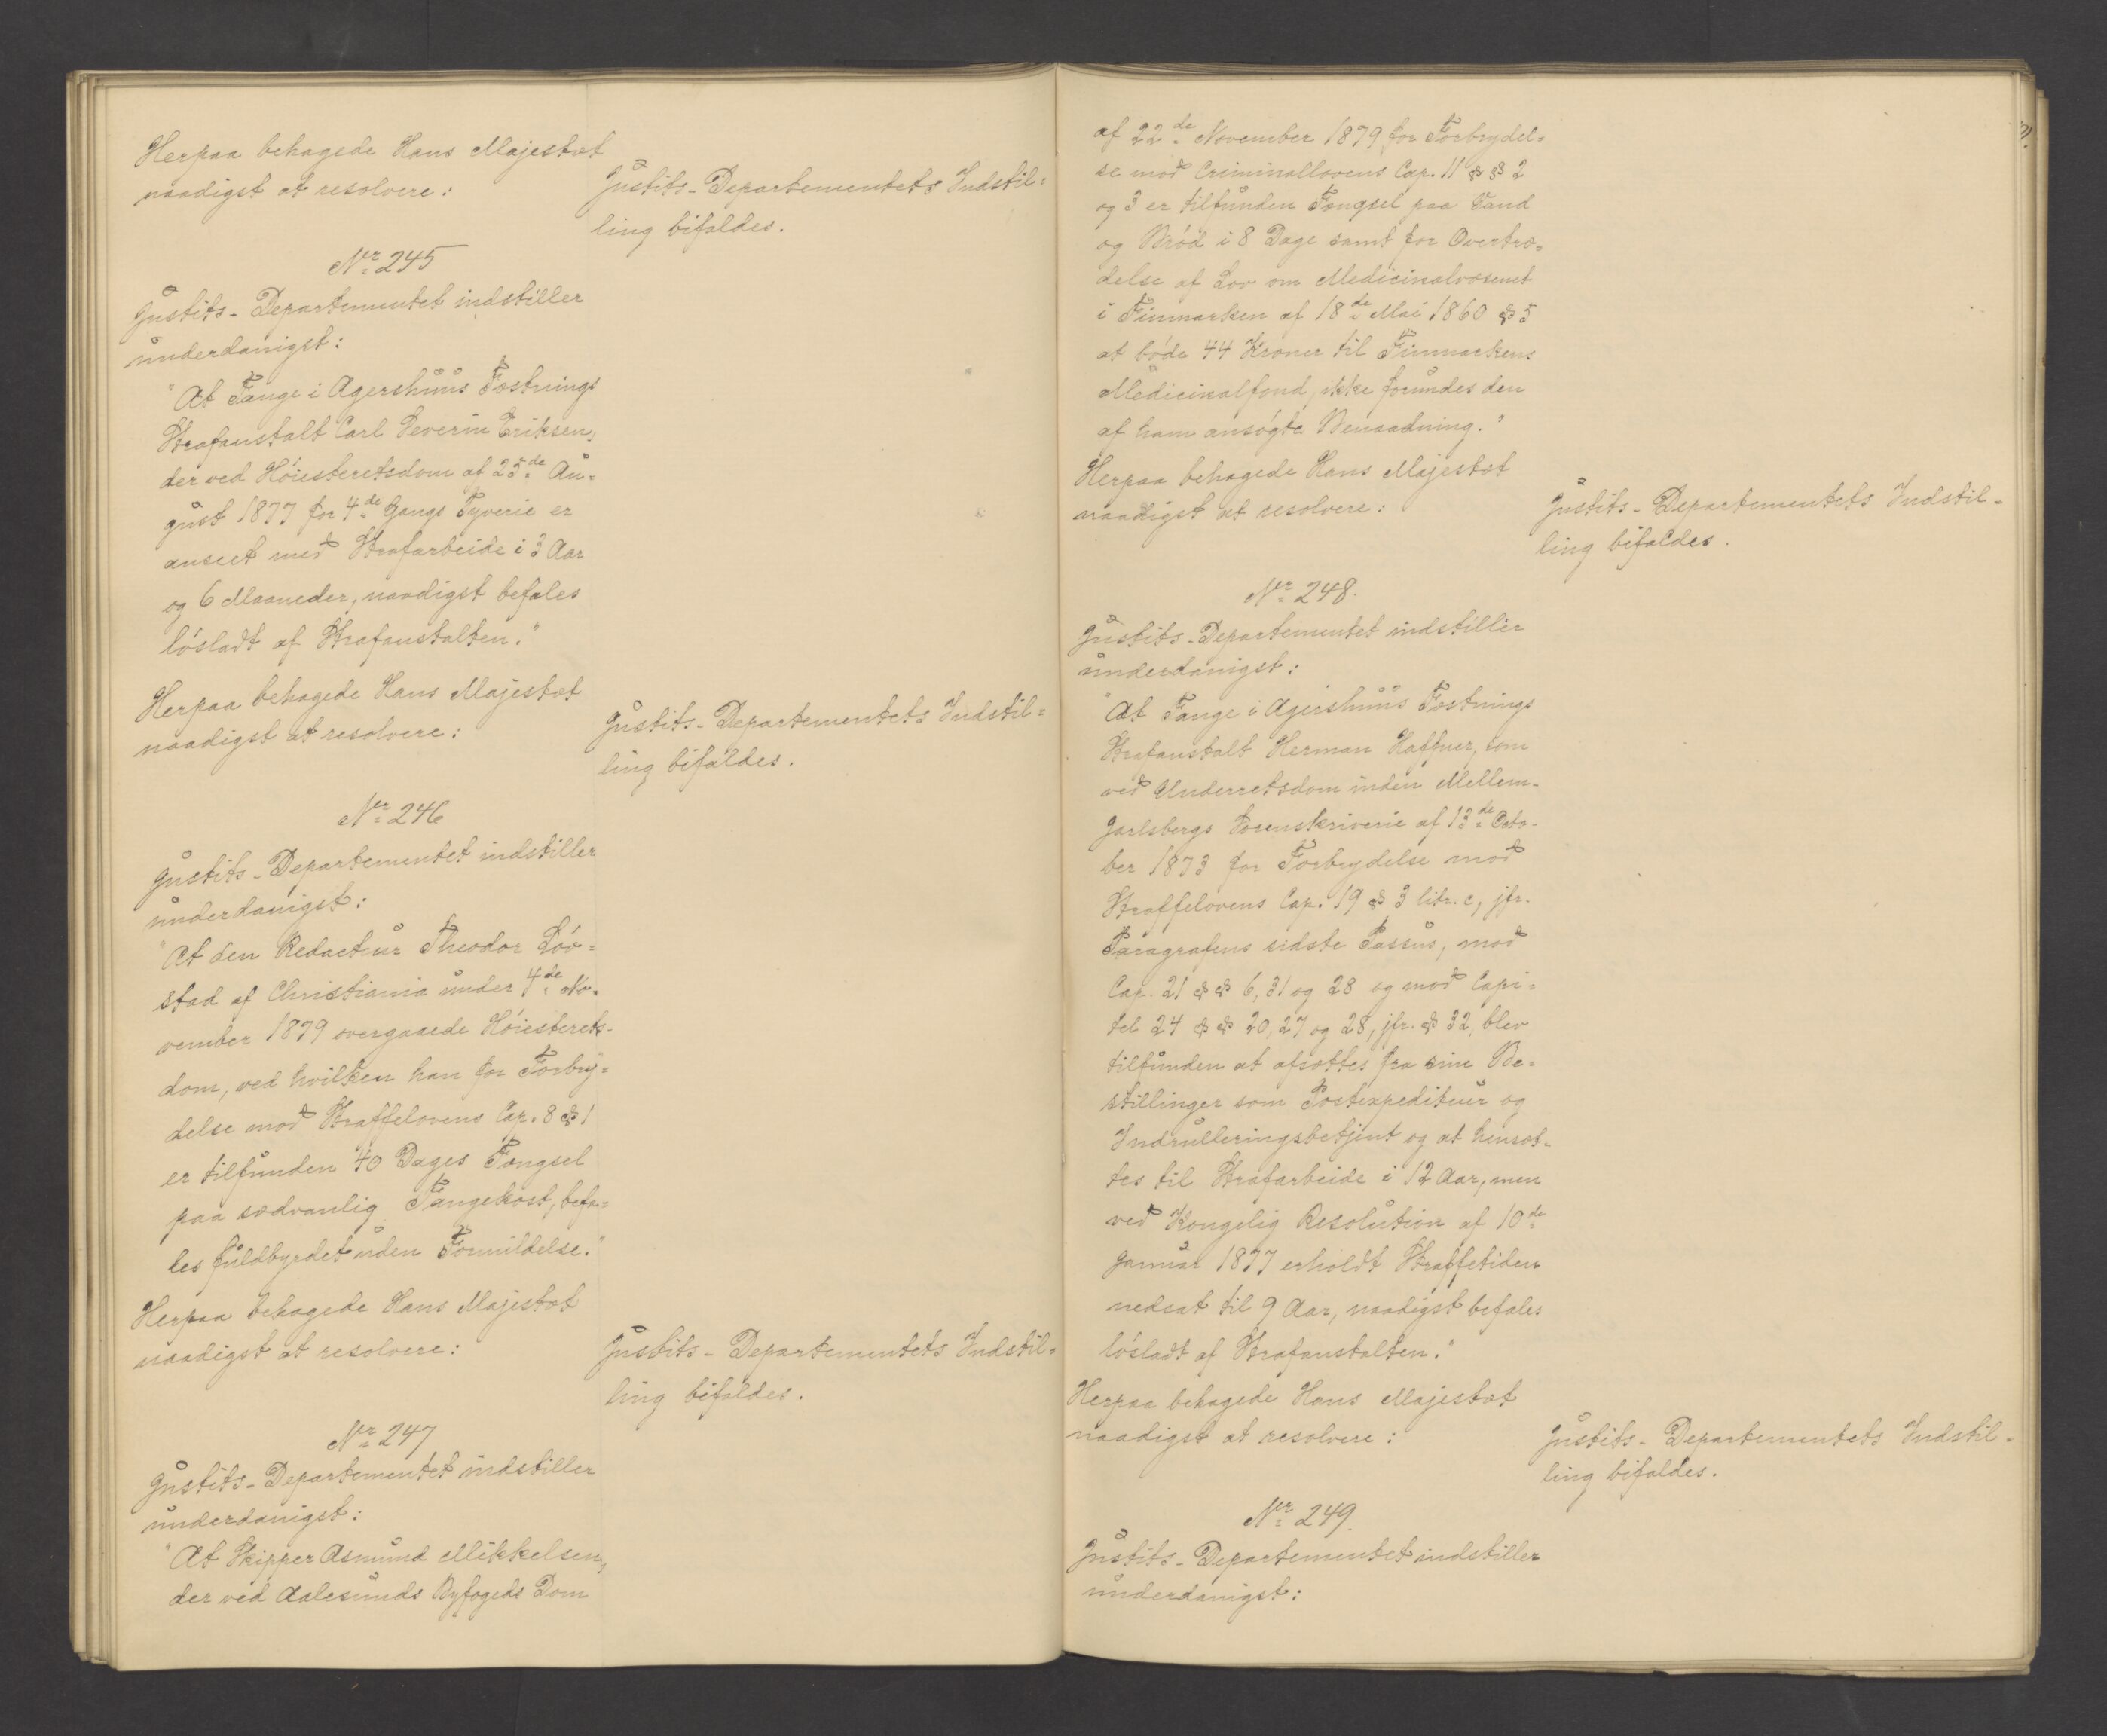 Herpaa behagede Hans Majestæt
naadigst at resolvere:
Justits-Departementets Indstil=
ling bifaldes.
Nr 245
Justits-Departementet indstiller
underdanigst:
"At Fange i Agershuus Fæstnings
Strafanstalt Carl Severin Eriksen,
der ved Höiesteretsdom af 25de Au=
gust 1877 for 4de Gangs Tyverie er
anseet med Strafarbeide i 3 Aar
og 6 Maaneder, naadigst befales
lösladt af Strafanstalten."
Herpaa behagede Hans Majestæt
naadigst at resolvere:
Justits-Departementets Indstil=
ling bifaldes.
Nr 246
Justits-Departementet indstiller
underdanigst:
"At den Redacteur Theodor Löv=
stad af Christiania under 4de No=
vember 1879 overgaaede Höiesterets-
dom, ved hvilken han for Forbry=
delse mod Straffelovens Cap. 8 § 1
er tilfunden 40 Dages Fængsel
paa sædvanlig Fangekost, befa=
les fuldbyrdet uden Formildelse."
Herpaa behagede Hans Majestæt
naadigst at resolvere:
Justits-Departementets Indstil=
ling bifaldes.
Nr 247
Justits-Departementet indstiller
underdanigst:
"At Skipper Asmund Mikkelsen,
der ved Aalesunds Byfogeds Dom
af 22de November 1879 for Forbrydel=
se mod Criminallovens Cap. 11 §§ 2
og 3 er tilfunden Fængsel paa Vand
og Bröd i 8 Dage samt for Overtræ=
delse af Lov om Medicinalvæsenet
i Finmarken af 18de Mai 1860 § 5
at böde 44 Kroner til Finmarkens
Medicinalfond, ikke forundes den
af ham ansögte Benaadning."
Herpaa behagede Hans Majestæt
naadigst at resolvere:
Justits-Departementets Indstil-
ling bifaldes.
Nr 248.
Justits-Departementet indstiller
underdanigst:
"At Fange i Agershuus Fæstnings
Strafanstalt Herman Haffner, som
ved Underretsdom inden Mellem-
Jarlsbergs Sorenskriverie af 13de Octo-
ber 1873 for Forbrydelse mod
Straffelovens Cap. 19 § 3 litr. c, jfr.
Paragrafens sidste Passus, mod
Cap. 21 §§ 6, 31 og 28 og mod Capi=
tel 24 §§ 20, 27 og 28, jfr. § 32, blev
tilfunden at afsættes fra sine Be=
stillinger som Postexpediteur og
Indrulleringsbetjent og at hensæt-
tes til Strafarbeide i 12 Aar, men
ved Kongelig Resolution af 10de
Januar 1877 erholdt Straffetiden
nedsat til 9 Aar, naadigst befales
lösladt af Strafanstalten."
Herpaa behagede Hans Majestæt
naadigst at resolvere:
Justits-Departementets Indstil-
ling bifaldes.
Nr 249.
Justits-Departementet indstiller
underdanigst: